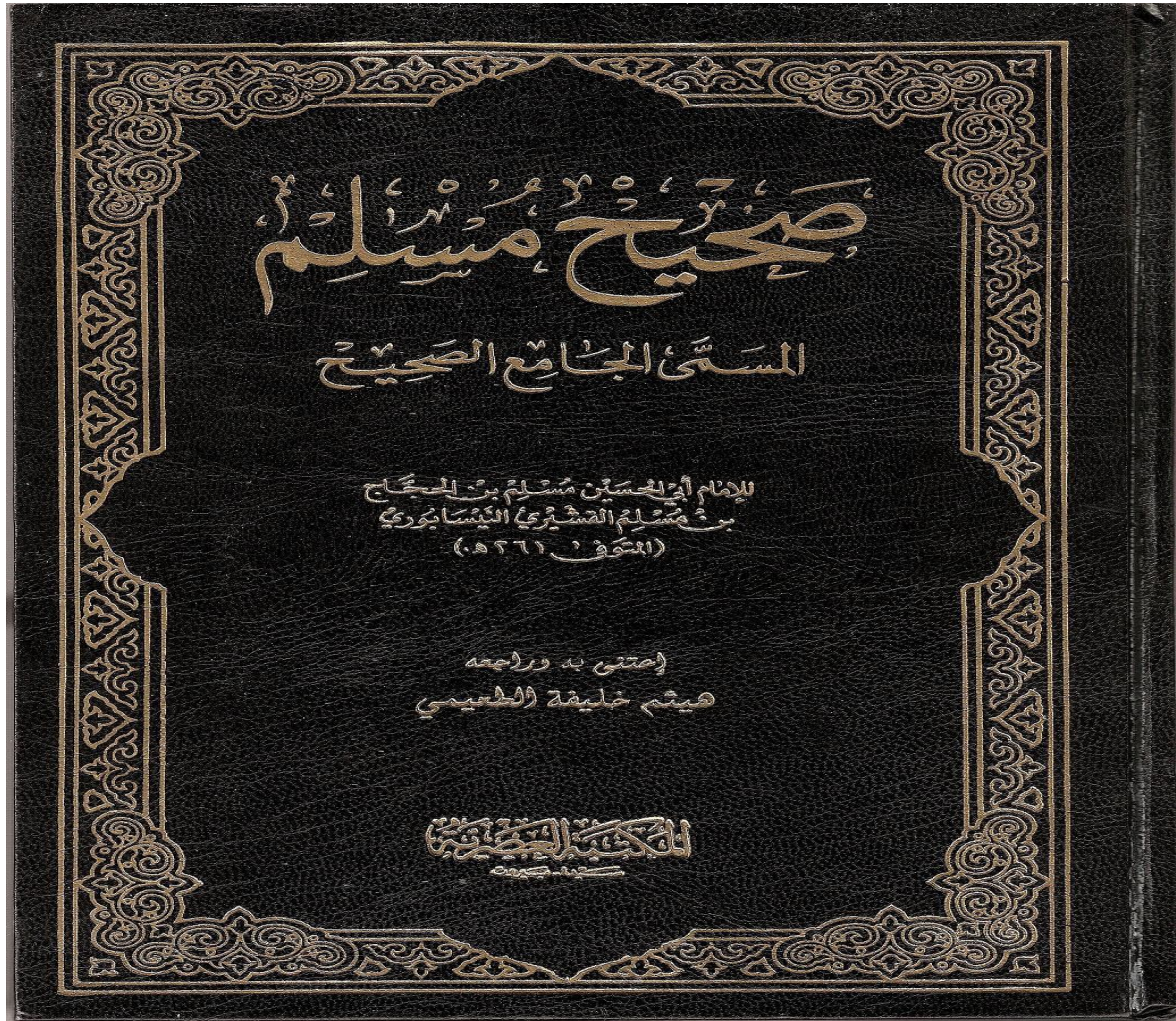 صحيح مسلم
المسمى الجامع الصحيح
للإمام أبي الحسين مسلم بن الحجاج
بن مسلم القشيري النيسابوري
(المتوفى ٢٦١ هـ)
إعتنى به وراجعه
هيثم خليفة الطعيمي
المكتبة العصرية
صيدا - بيروت